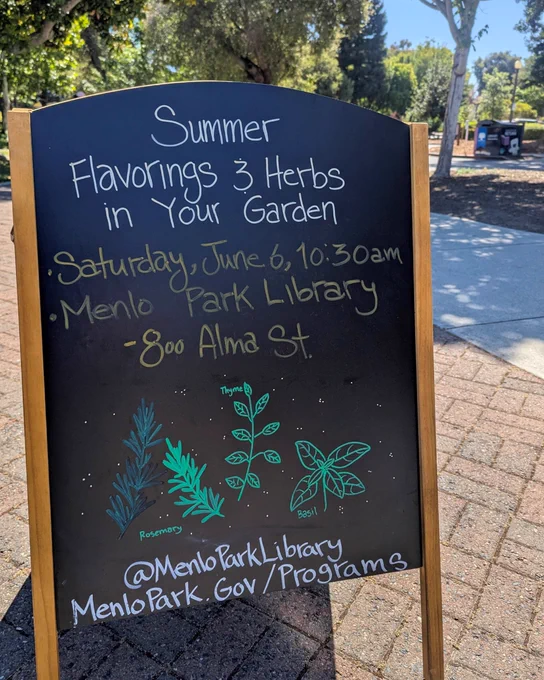 Summer
Flavorings & Herbs
in Your Garden
• Saturday, June 6, 10:30am
• Menlo Park Library
- 800 Alma St.
Thyme
Rosemary
Basil
@MenloParkLibrary
MenloPark.Gov/Programs